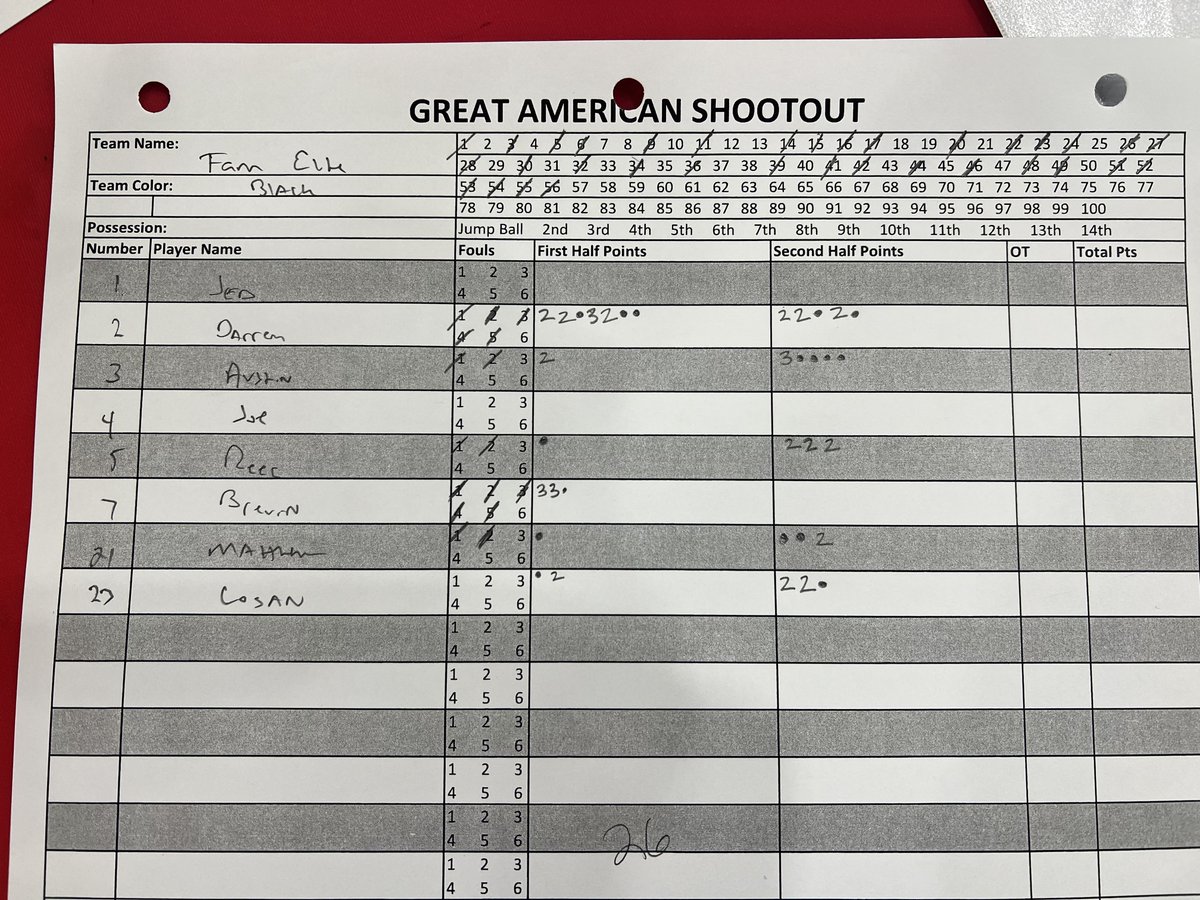 GREAT AMERICAN SHOOTOUT
Team Name: Fam Elite 1 2 3 4 5 6 7 8 9 10 11 12 13 14 15 16 17 18 19 20 21 22 23 24 25 26 27
28 29 30 31 32 33 34 35 36 37 38 39 40 41 42 43 44 45 46 47 48 49 50 51 52
Team Color: Black 53 54 55 56 57 58 59 60 61 62 63 64 65 66 67 68 69 70 71 72 73 74 75 76 77
78 79 80 81 82 83 84 85 86 87 88 89 90 91 92 93 94 95 96 97 98 99 100
Possession: Jump Ball 2nd 3rd 4th 5th 6th 7th 8th 9th 10th 11th 12th 13th 14th
Number Player Name Fouls First Half Points Second Half Points OT Total Pts
1 Jed 1 2 3
4 5 6
2 Darren 1 2 3 22•32•• 22•2•
4 5 6
3 Austin 1 2 3 2 3••••
4 5 6
4 Joe 1 2 3
4 5 6
5 Reec 1 2 3 • 222
4 5 6
7 Brevin 1 2 3 33•
4 5 6
21 1 2 3 • ••2
4 5 6
23 Cosan 1 2 3 •2 22•
4 5 6
1 2 3
4 5 6
1 2 3
4 5 6
1 2 3
4 5 6
1 2 3
4 5 6
1 2 3
4 5 6
26
1 2 3
4 5 6